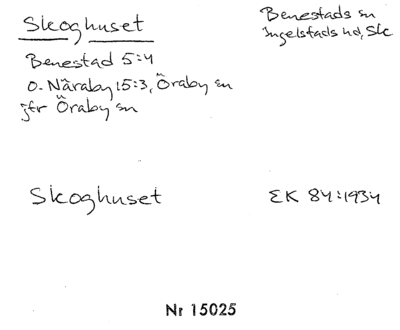 Skoghuset
Benestads sn
Ingelstads hd, Sk
Benestad 5:4
o. Näraby 15:3, Öraby sn
jfr Öraby sn
Skoghuset
EK 84:1934
Nr 15025